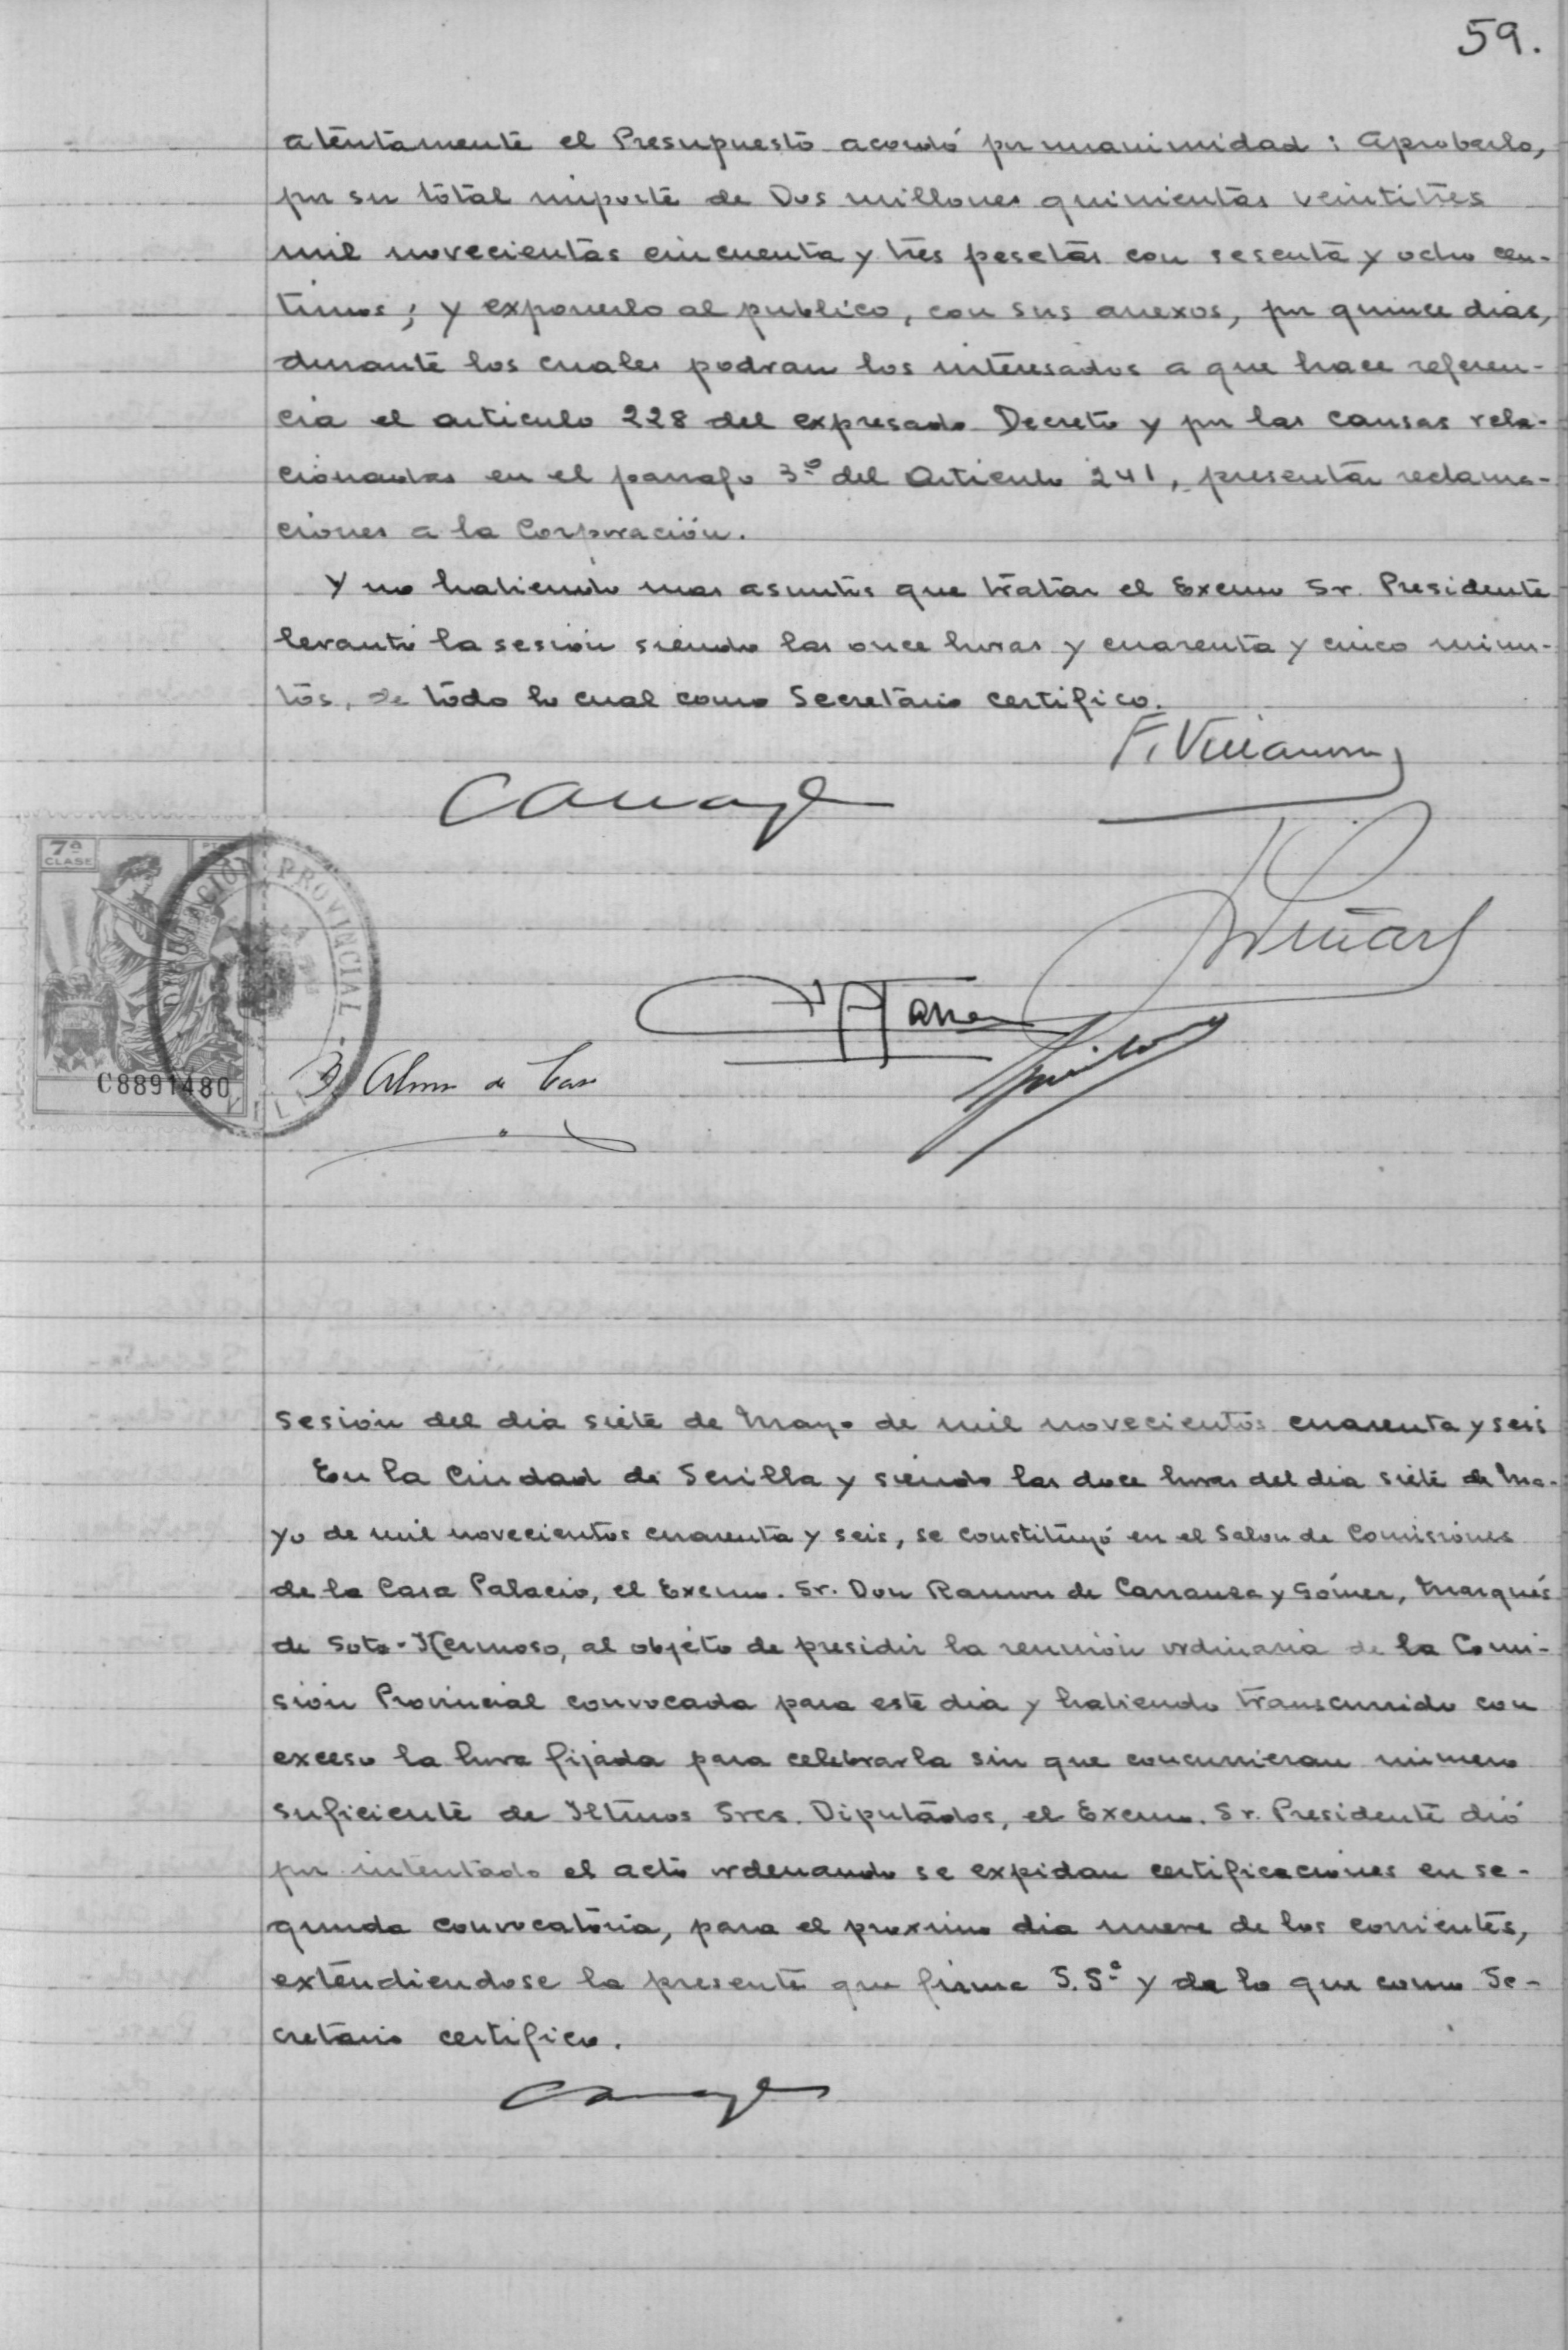 59.
atentamente el Presupuesto acordó por unanimidad: Aprobarlo,
por su total importe de Dos millones quinientas veintitres
mil novecientas cincuenta y tres pesetas con sesenta y ocho cen-
timos; y exponerlo al publico, con sus anexos, por quince dias,
durante los cuales podran los interesados a que hace referen-
cia el articulo 228 del expresado Decreto y por las causas rela-
cionadas en el parrafo 3º del Articulo 241, presentar reclama-
ciones a la Corporación.
Y no habiendo mas asuntos que tratar el Excmo Sr. Presidente
levantó la sesión siendo las once horas y cuarenta y cinco minu-
tos, de todo lo cual como Secretario certifico.
7ª
CLASE
DIPUTACION PROVINCIAL
C8891480
Sesión del dia siete de Mayo de mil novecientos cuarenta y seis
En la Ciudad de Sevilla y siendo las doce horas del dia siete de Ma-
yo de mil novecientos cuarenta y seis, se constituyó en el Salon de Comisiones
de la Casa Palacio, el Excmo. Sr. Don Ramon de Carranza y Gómez, Marqués
de Soto-Hermoso, al objeto de presidir la reunión ordinaria de la Comi-
sión Provincial convocada para este dia y habiendo transcurrido con
exceso la hora fijada para celebrarla sin que concurrieran número
suficiente de Iltmos Sres. Diputados, el Excmo. Sr. Presidente dió
por intentado el acto ordenando se expidan certificaciones en se-
gunda convocatoria, para el proximo dia nueve de los corrientes,
extendiendose la presente que firma S.Sª y de lo que como Se-
cretario certifico.